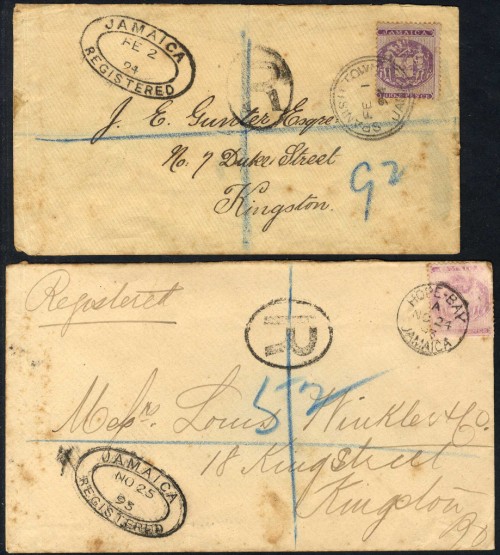 JAMAICA
FE 2
94
REGISTERED
R
SPANISH TOWN
FE 1
J. E. Gunter Esqre
No. 7 Duke Street
Kingston.
92
Registered
R
HOPE-BAY
A
NO 24
JAMAICA
52
Messrs. Louis Winkler & Co.
18 King Street
Kingston
JAMAICA
NO 25
93
REGISTERED